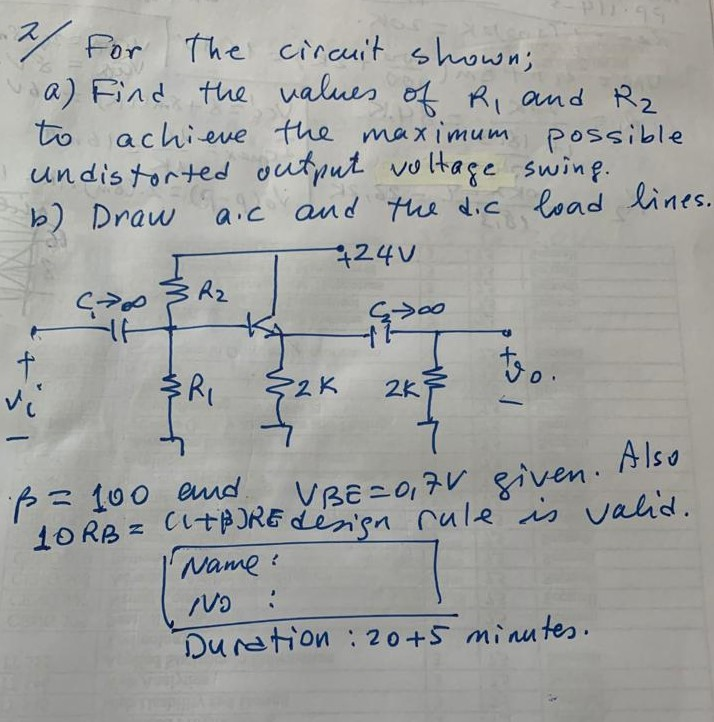 2/ For The circuit shown;
a) Find the values of R1 and R2
to achieve the maximum possible
undistorted output voltage swing.
b) Draw a.c and the d.c load lines.
+24V
R2
C1→∞
C2→∞
+
Vi
-
R1
2K
2K
+
Vo.
-
β = 100 and VBE=0,7V given. Also
10RB = (1+β)RE design rule is valid.
Name :
No :
Duration : 20+5 minutes.